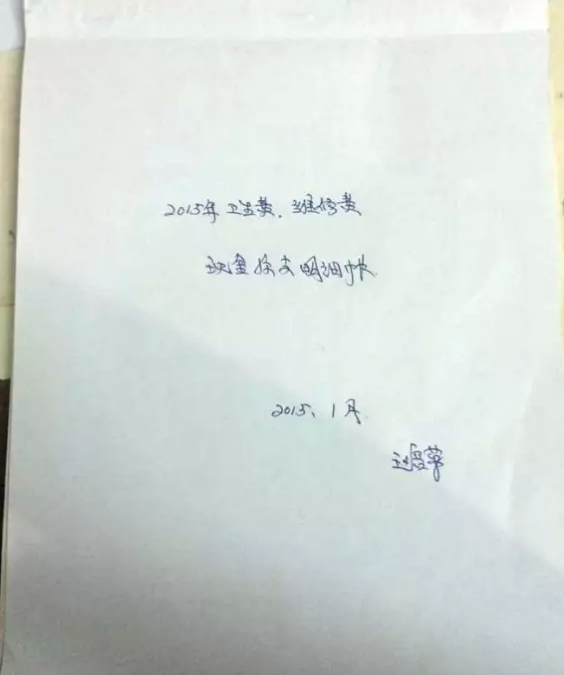 2015年卫生费.维修费
现金收支明细帐
2015、1月